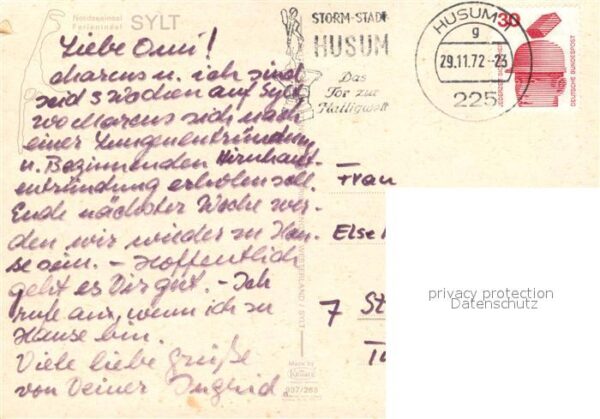 Nordseeinsel
Ferieninsel SYLT
Liebe Omi!
Marcus u. ich sind
seid 3 Wochen auf Sylt,
wo Marcus sich nach
einer Lungenentzündung
u. Beginnenden Hirnhaut-
entzündung erholen soll.
Ende nächster Woche wer-
den wir wieder zu Hau-
se sein. – Hoffentlich
geht es Dir gut. – Ich
rufe an, wenn ich zu
Hause bin.
Viele liebe Grüße
von Deiner Ingrid
STORM-STADT
HUSUM
Das
Tor zur
Halligwelt
HUSUM 1
g
29.11.72-23
225
30
DEUTSCHE BUNDESPOST
WESTERLAND / SYLT
Made by
Krüger
937/265
Frau
Else
7 St
privacy protection
Datenschutz